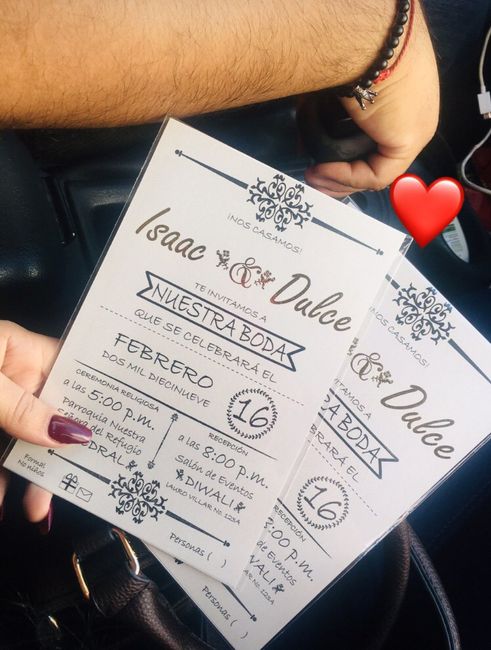 ¡NOS CASAMOS!
Isaac & Dulce
TE INVITAMOS A
NUESTRA BODA
QUE SE CELEBRARÁ EL
FEBRERO
DOS MIL DIECINUEVE
16
CEREMONIA RELIGIOSA
a las 5:00 p.m.
Parroquia Nuestra
Señora del Refugio
EDRAL
RECEPCIÓN
a las 8:00 p.m.
Salón de Eventos
DIWALI
LAURO VILLAR No. 123A
Formal
No niños
Personas ( )
¡NOS CASAMOS!
& Dulce
A
BODA
EBRARÁ EL
16
RECEPCIÓN
:00 p.m.
de Eventos
WALI
VILLAR No. 123A
Personas ( )